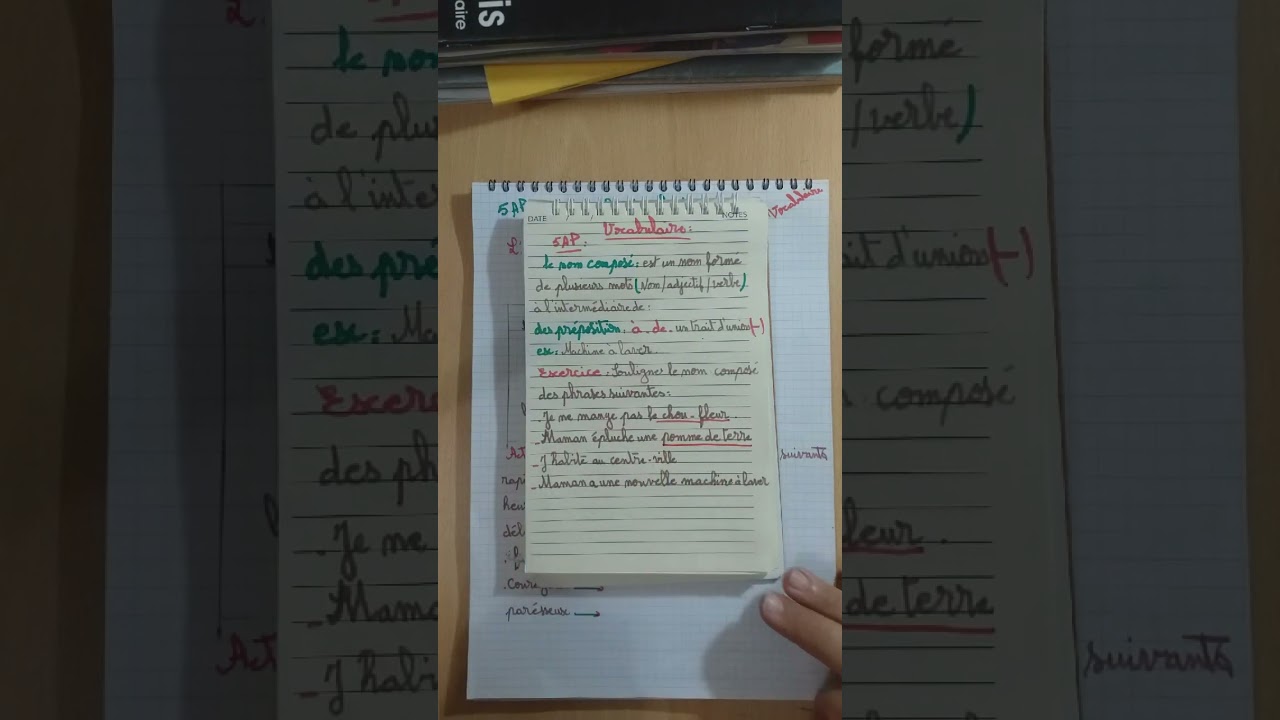 is
aire
5AP
Vocabulaire
DATE
NOTES
Vocabulaire:
5AP:
Le nom composé: est un nom formé
de plusieurs mots (Nom/adjectif/verbe)
à l'intermédiaire de:
des préposition: à - de - un trait d'union (-)
ex: Machine à laver.
Exercice: Souligner le nom composé
des phrases suivantes:
- Je ne mange pas le chou-fleur.
- Maman épluche une pomme de terre
- J'habite au centre-ville
- Maman a une nouvelle machine à laver
suivants
paresseux →